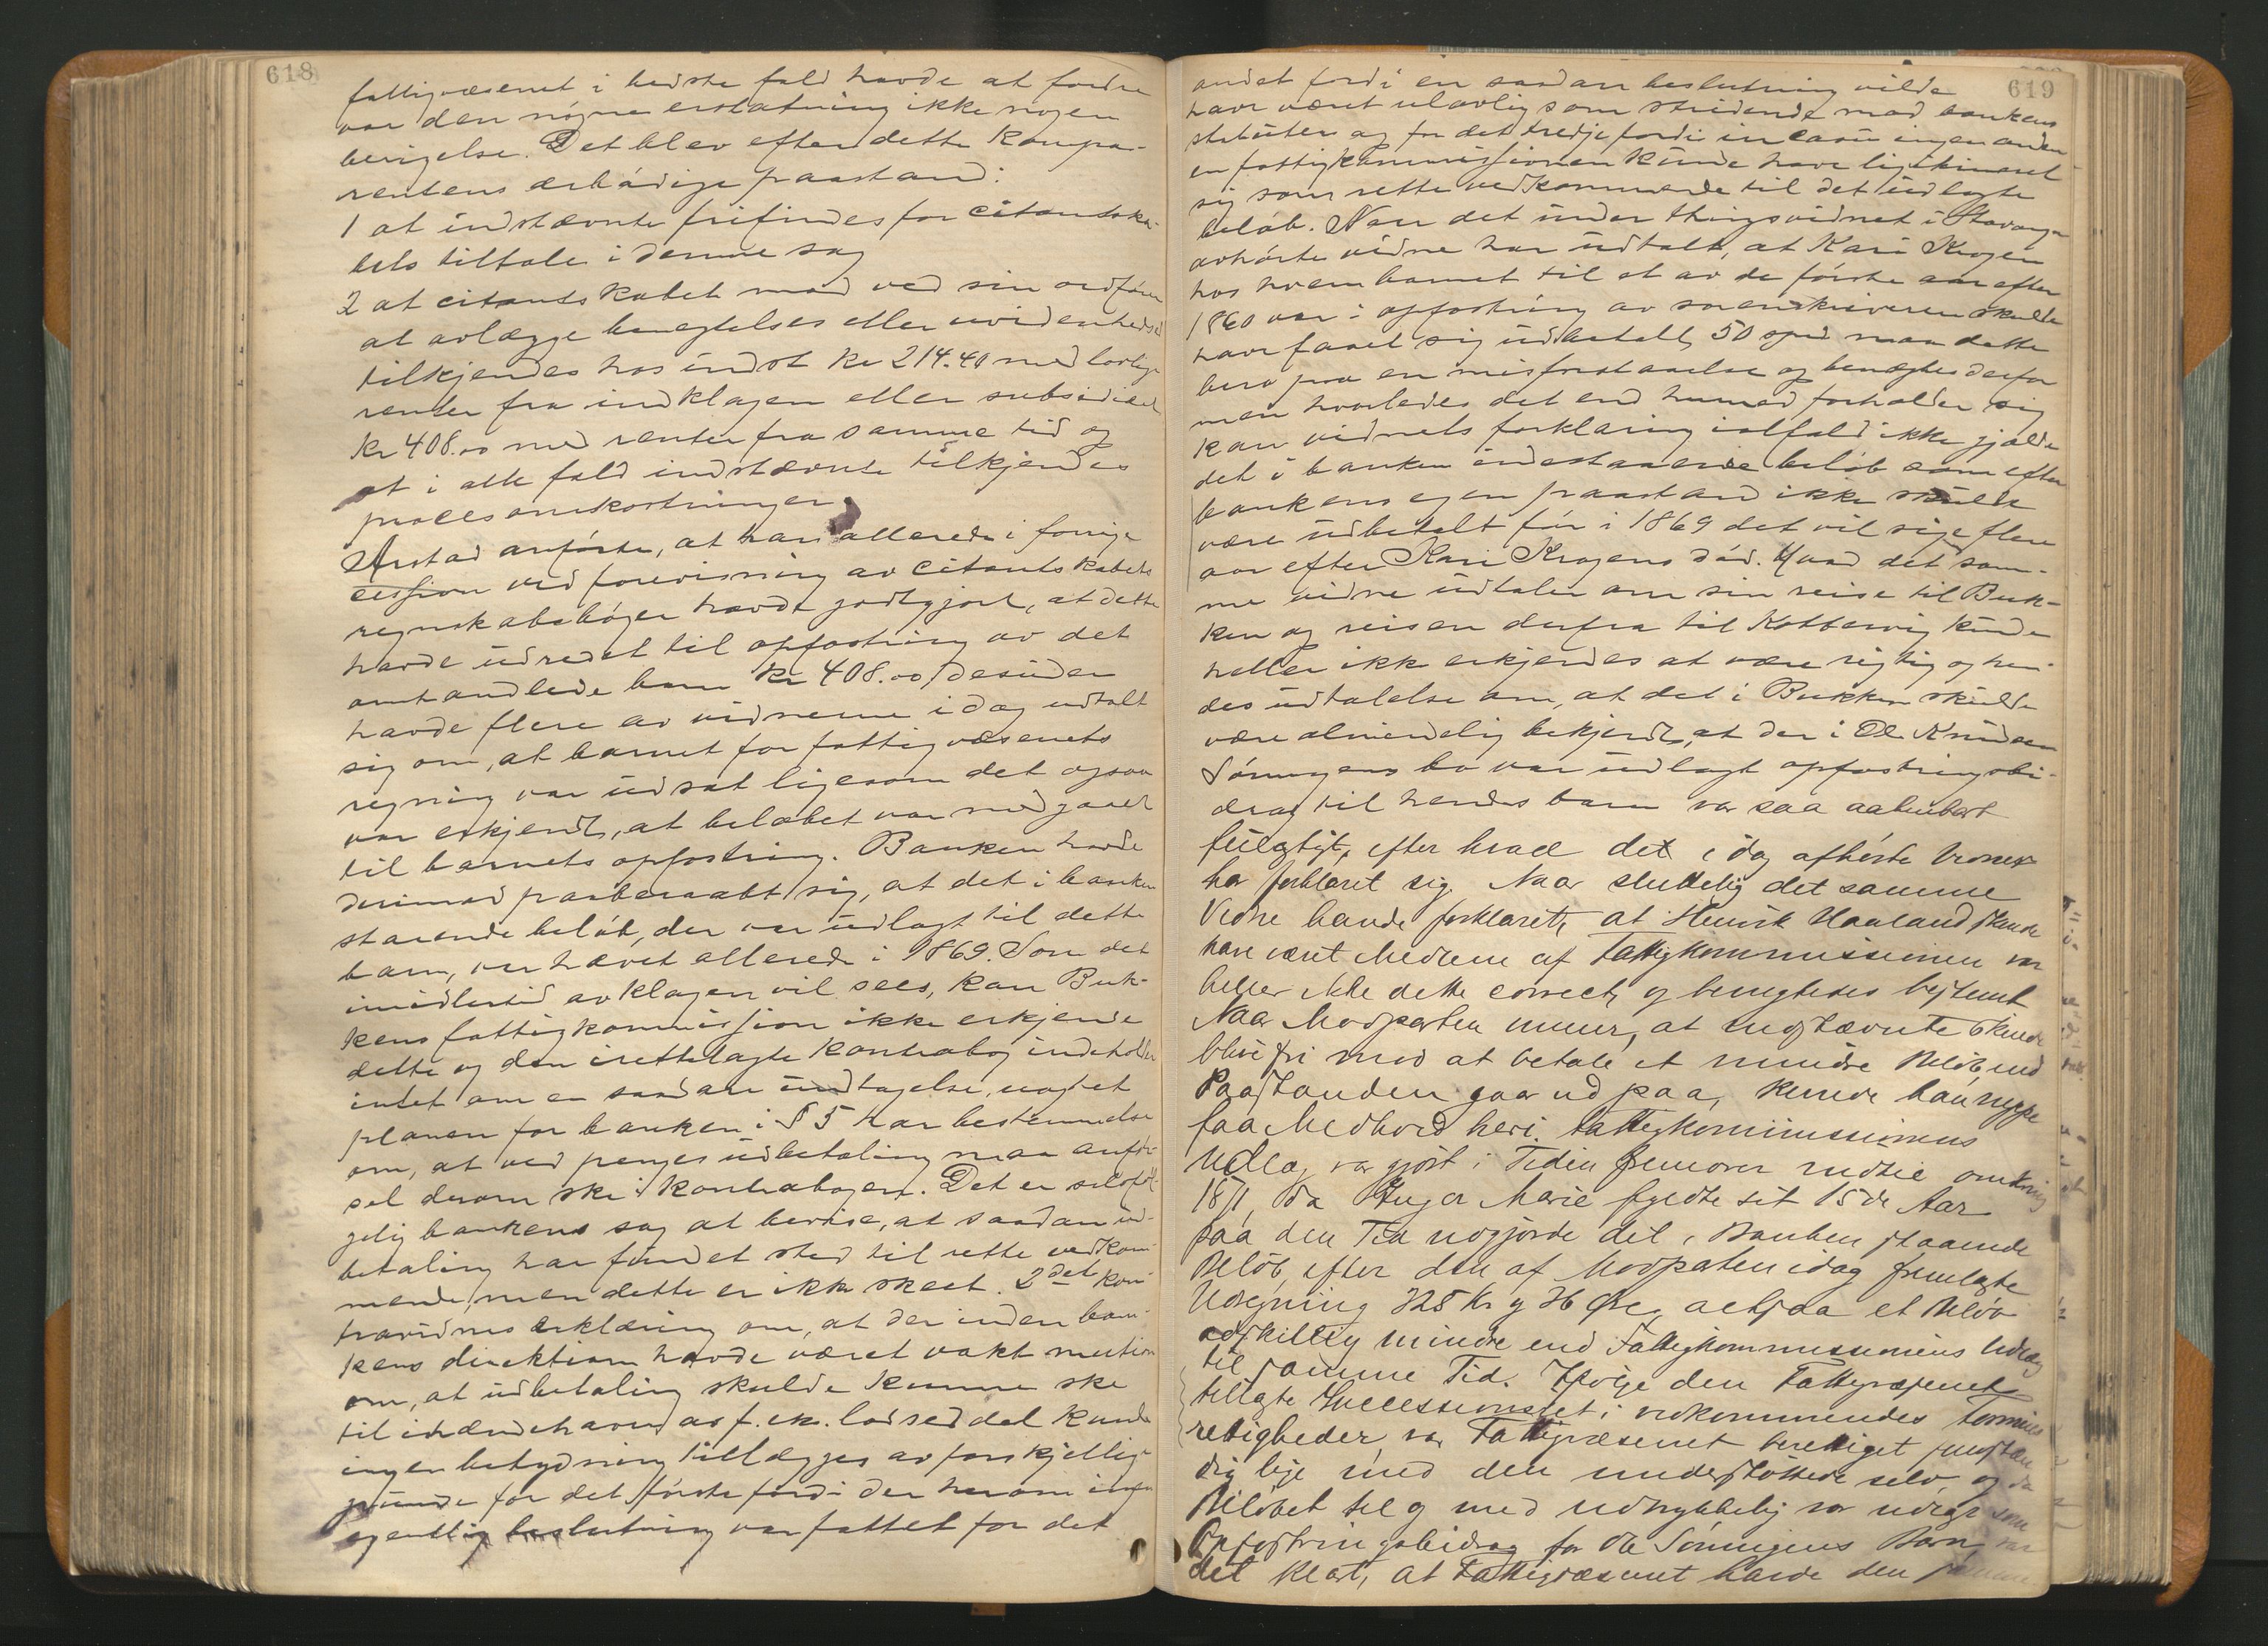 618
fattigvæsenet i bedste fald havde at fordre
var den nøgne erstatning ikke nogen
berigelse. Det blev efter dette kompa-
rentens ærbødige paastand:
1 at indstævnte frifindes for citantska-
bets tiltale i denne sag
2 at citantskabet mod ved sin ordfører
at avlægge benegtelses eller uvidenhedsed
tilkjendes hos indst kr 214.40 med lovlige
renter fra indklagen eller subsidiært
kr 408.00 med renter fra samme tid og
at i alle fald indstævnte tilkjendes
procesomkostninger
Arstad anførte, at han allerede i forrige
cession ved forevisning av citantskabets
regnskabsbøger havde godtgjort, at dette
havde udredet til opfostring av det
omhandlede barn kr 408.00, desuden
havde flere av vidnerne idag udtalt
sig om, at barnet for fattigvæsenets
regning var udsat ligesom det ogsaa
var erkjendt, at beløbet var medgaaet
til barnets opfostring. Banken havde
derimod paaberaabt sig, at det i banken
staaende beløb, der var udlagt til dette
barn, var hævet allerede i 1869. Som det
imidlertid av klagen vil sees, kan Buk-
kens fattigkommission ikke erkjende
dette og den irettelagte kontrabog indeholder
intet om en saadan udtagelse, uagtet
planen for banken i § 5 har bestemmelse
om, at ved penges udbetaling maa anfør-
sel derom ske i kontrabogen. Det er selvføl-
gelig bankens sag at bevise, at saadan ud-
betaling har fundet sted til rette vedkom-
mende, men dette er ikke skeet. 2det kon-
travidnes erklæring om, at der inden ban-
kens direktion havde været vakt mention
om, at udbetaling skulde kunne ske
til ihændehaver av f. ex. lodseddel kunde
ingen betydning tillægges av forskjellige
grunde for det første fordi der herom ingen
egentlig beslutning var fattet for det
619
andet fordi en saadan beslutning vilde
have været ulovlig som stridende mod bankens
statuter og for det tredje fordi in casu ingen anden
en fattigkommissionen kunde have ligitimeret
sig som rette vedkommende til det udlagte
beløb. Naar det under thingsvidnet i Stavanger
avhørte vidne har udtalt, at Kari Krogen
hos hvem barnet til at av de første aar efter
1860 var i opfostring av sorenskriveren skulde
have faaet sig udbetalt 50 spd maa dette
bero paa en misforstaaelse og benægtes derfor
men hvorledes det end hermed forholder sig
kan vidnets forklaring ialfald ikke gjælde
det i banken indestaaende beløb som efter
bankens egen paastand ikke skulde
være udbetalt før i 1869 det vil sige flere
aar efter Kari Krogens død. Hvad det sam-
me vidne udtaler om sin reise til Buk-
ken og reisen derfra til Kobbervig kunde
heller ikke erkjendes at være rigtig og hen-
des udtalelse om, at det i Bukken skulde
være almindelig bekjendt, at der i Ole Knudsen
Sønnigens bo var udlagt opfostringsbi-
drag til hendes barn var saa aabenbart
feilagtigt, efter hvad det i dag afhørte Vidne
har forklaret sig. Naar sluttelig det samme
Vidne havde forklaret, at Henrik Haaland skulde
have været Medlem af Fattigkommissionen var
heller ikke dette correct, og benegtedes bestemt
Naar Modparten mener, at Indstævnte skulde
blive fri mod at betale et mindre Beløb, end
Paastanden gaar ud paa, kunde han neppe
faa Medhold heri. Fattigkommissionens
Udlæg var gjort i Tiden fremover indtil omkring
1871, da Inger Marie fyldte sit 15de Aar
paa den Tid udgjorde det i Banken staaende
Beløb, efter den af Modparten idag fremlagte
Udregning 325 Kr og 36 Øre, altsaa et Beløb
adskillig mindre end Fattigkommissionens Udlæg
til samme Tid. Ifølge den Fattigvæsenet
tillagte Successionsret i vedkommendes Formues
rettigheder, var Fattigvæsenet berettiget
lige med den understøttede selv, og da
Beløbet til og med udtrykkelig var udlagt som
Opfostringsbidrag for Ole Sønnigens Barn, var
det klart, at Fattigvæsenet havde den